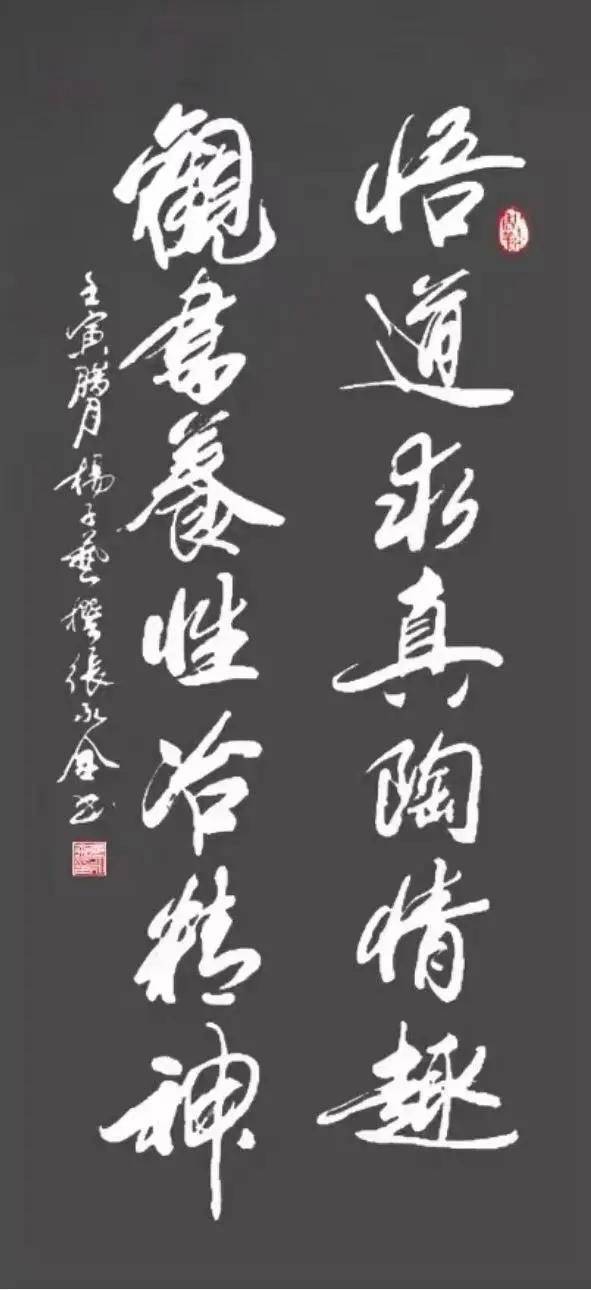 悟道求真陶情趣
觀書養性冶精神
壬寅臘月楊子藝撰張永金書